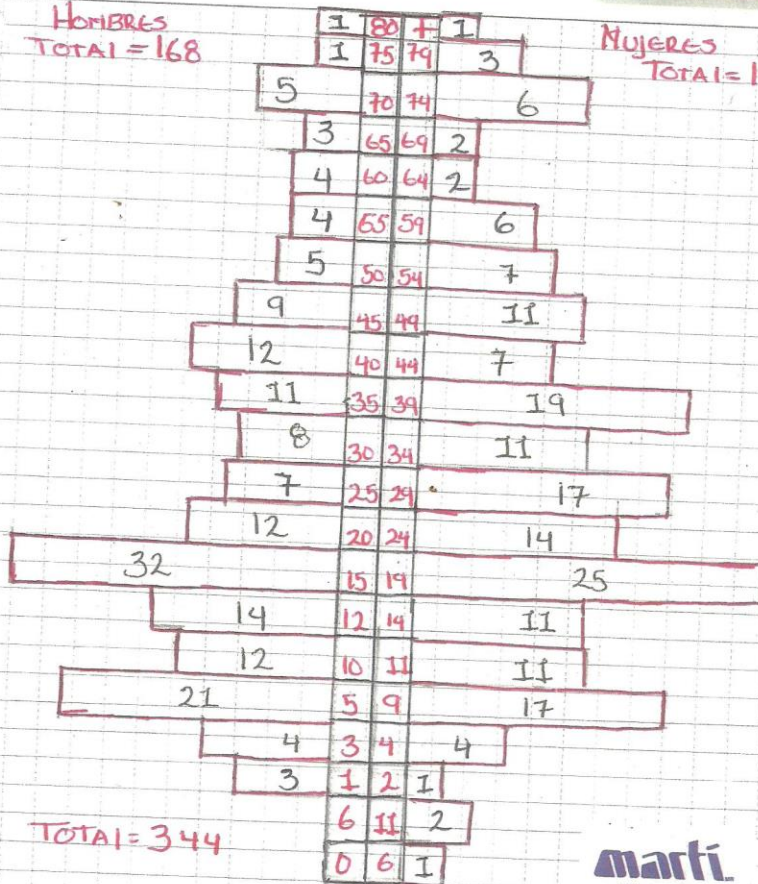 HOMBRES
TOTAL = 168
MUJERES
TOTAL = 1
1 80 + 1
1 75 79 3
5 70 74 6
3 65 69 2
4 60 64 2
4 55 59 6
5 50 54 7
9 45 49 11
12 40 44 7
11 35 39 19
8 30 34 11
7 25 29 17
12 20 24 14
32 15 19 25
14 12 14 11
12 10 11 11
21 5 9 17
4 3 4 4
3 1 2 1
6 11 2
0 6 1
TOTAL = 344
martí.